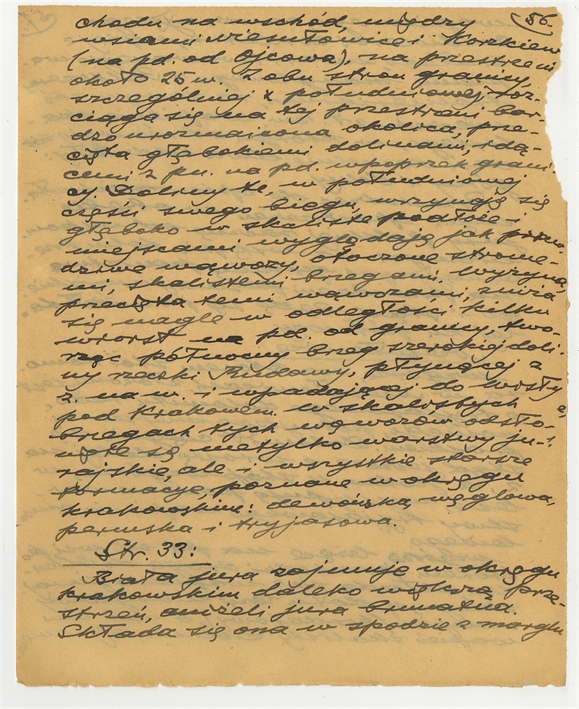 56.
chodu na wschód, między
wsiami Wiesiołowice i Korzkiew
(na pd. od Ojcowa), na przestrzeni
około 25 w. Z obu stron granicy,
szczególniej z południowej, roz-
ciąga się na tej przestrzeni bar-
dzo urozmaicona okolica, prze-
cięta głębokiemi dolinami, idą-
cemi z pn. na pd. wpoprzek grani-
cy. Doliny te, w południowej
części swego biegu, wrzynają się
głęboko w skaliste podłoże i
miejscami wyglądają jak praw-
dziwe wąwozy, otoczone strome-
mi, skalistemi brzegami. Wyżyna,
przecięta temi wąwozami, zniża
się nagle w odległości kilku
wiorst na pd. od granicy, two-
rząc północny brzeg szerokiej doli-
ny rzeczki Rudawy, płynącej z
z. na w. i wpadającej do Wisły
pod Krakowem. W skalistych
brzegach tych wąwozów odsło-
nięte są nietylko warstwy ju-
rajskie, ale i wszystkie starsze
formacye, poznane w okręgu
krakowskim: dewońska, węglowa,
permska i tryjasowa.
Str. 33:
Biała jura zajmuje w okręgu
krakowskim daleko większą prze-
strzeń, aniżeli jura brunatna.
Składa się ona w spodzie z margli